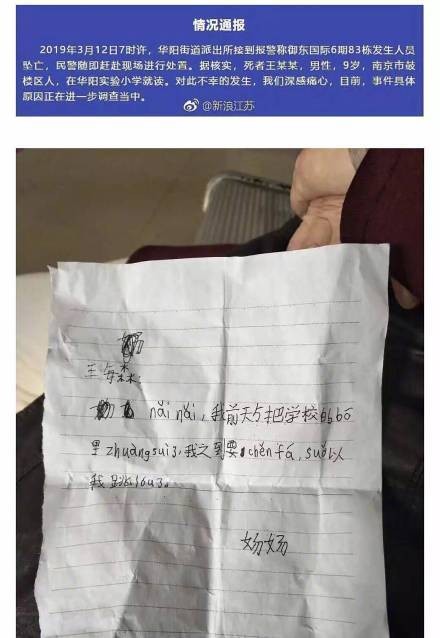 情况通报
2019年3月12日7时许，华阳街道派出所接到报警称御东国际6期83栋发生人员
坠亡，民警随即赶赴现场进行处置。据核实，死者王某某，男性，9岁，南京市鼓
楼区人，在华阳实验小学就读。对此不幸的发生，我们深感痛心，目前，事件具体
原因正在进一步调查当中。
@新浪江苏
nǎi nǎi，我前天与把学校的bō
里zhuàng suì了，我知到要chěn fá，suǒ以
我跳lóu了。